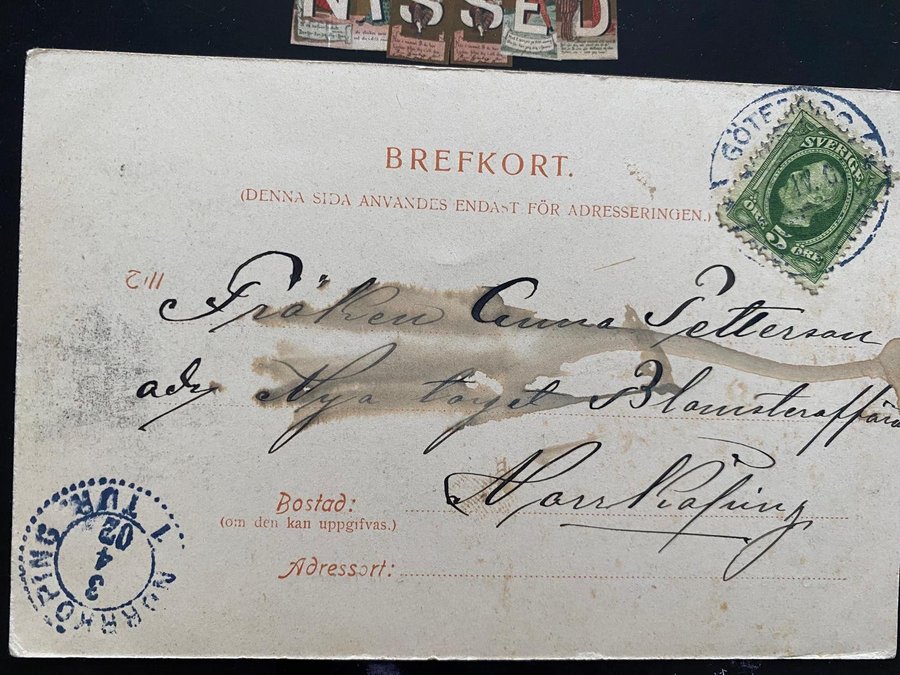 NISSED
BREFKORT.
(DENNA SIDA ANVANDES ENDAST FÖR ADRESSERINGEN.)
GÖTEBORG
SVERIGE
5 ÖRE
Till
Fröken Anna Petterson
adr Nya torget Blomsteraffären
Norrköping
Bostad:
(om den kan uppgifvas.)
Adressort:
NORRKÖPING 1 TUR
3 4 02